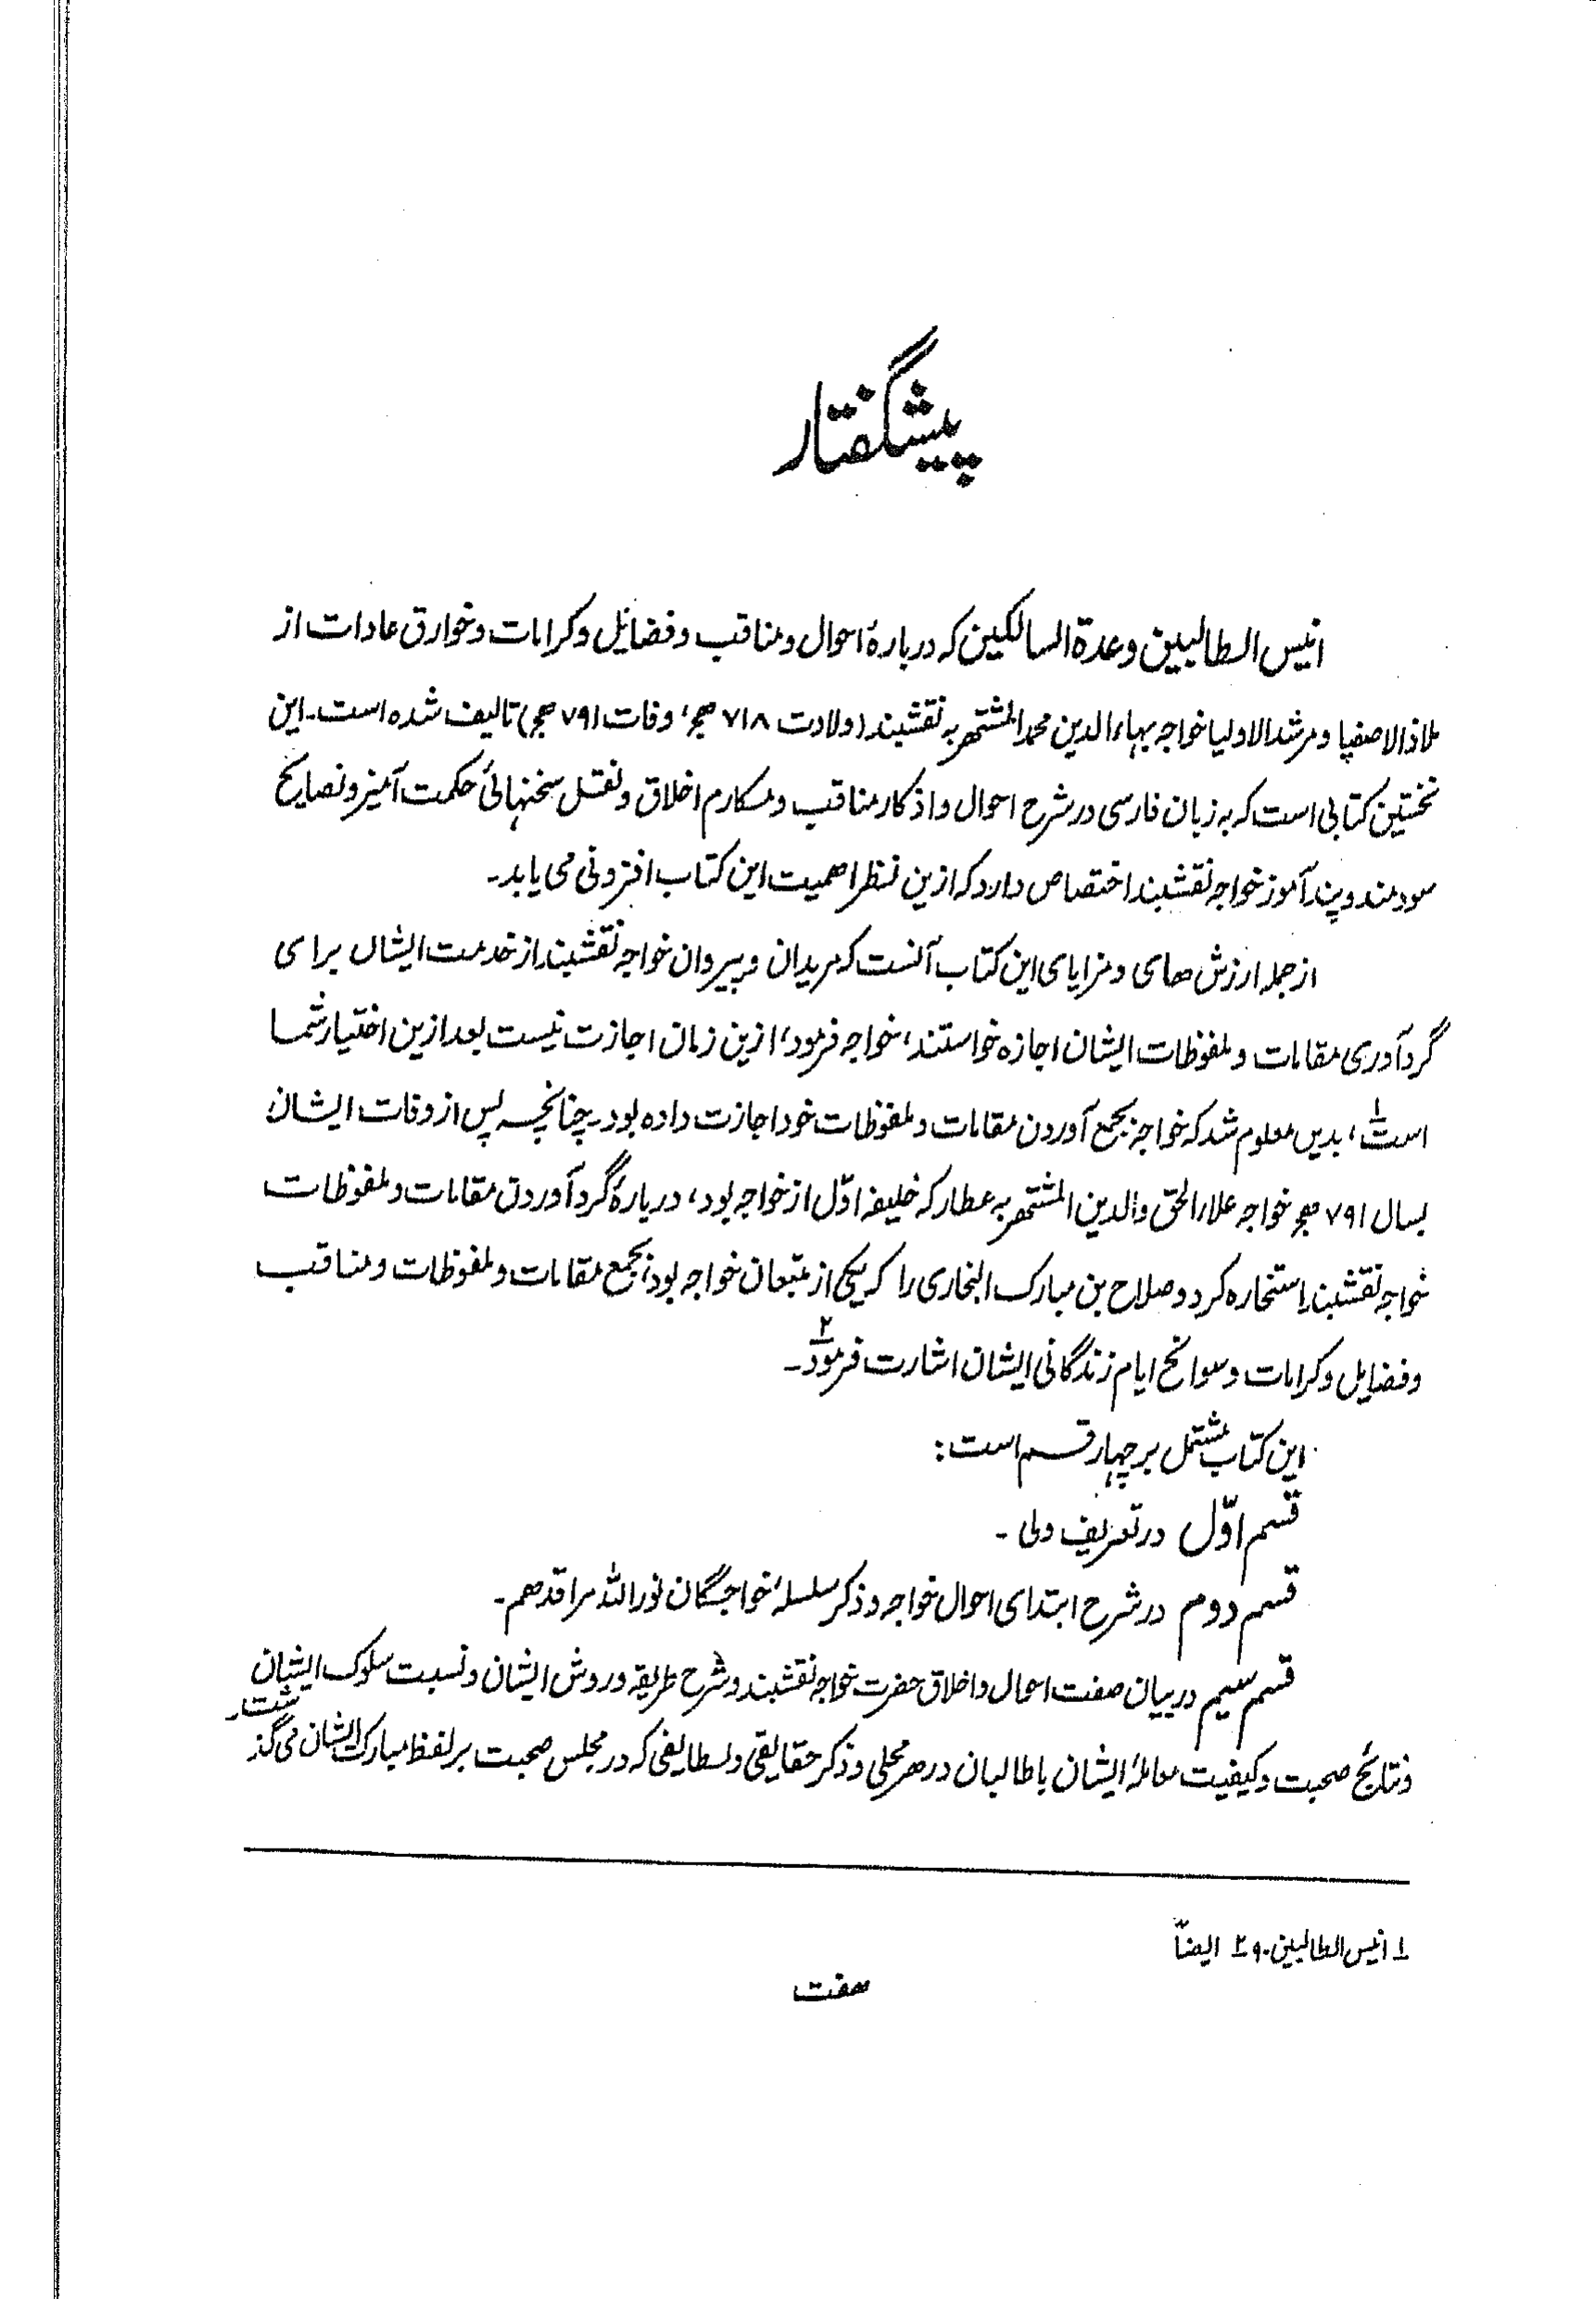 پیشگفتار
انیس الطالبین وعدة السالکین که دربارۀ احوال ومناقب وفضائل وکرامات وخوارق عادات از
ملاذ الاصفیا ومرشد الاولیا خواجه بهاء الدین محمد المشتهر به نقشبند (ولادت ۷۱۸ هج، وفات ۷۹۱ هج) تالیف شده است۔ این
نخستین کتابی است که به زبان فارسی در شرح احوال واذکار مناقب ومکارم اخلاق ونقل سخنهائ حکمت آمیز ونصایح
سودمند وپند آموز خواجه نقشبند اختصاص دارد که ازین نظر اهمیت این کتاب افزونی می یابد۔
از جمله ارزش های ومزایای این کتاب آنست که مریدان وپیروان خواجه نقشبند از خدمت ایشان برای
گرد آوری مقامات وملفوظات ایشان اجازه خواستند، خواجه فرمود، ازین زمان اجازت نیست بعد ازین اختیار شما
است۱، بدین معلوم شد که خواجه بجمع آوردن مقامات وملفوظات خود اجازت داده بود۔ چنانچه پس از وفات ایشان
بسال ۷۹۱ هج خواجه علاء الحق والدین المشتهر به عطار که خلیفه اوّل از خواجه بود، دربارۀ گرد آوردن مقامات وملفوظات
خواجه نقشبند استخاره کرد وصلاح بن مبارک البخاری را که یکی از متبعان خواجه بود، بجمع مقامات وملفوظات ومناقب
وفضایل وکرامات وسوانح ایام زندگانی ایشان اشارت فرمود۲۔
این کتاب مشتمل بر چهار قسم است:
قسم اوّل در تعریف ولی ۔
قسم دوم در شرح ابتدای احوال خواجه وذکر سلسلۀ خواجگان نور الله مراقدهم۔
قسم سیم در بیان صفت احوال واخلاق حضرت خواجه نقشبند وشرح طریقه وروش ایشان ونسبت سلوک ایشان
ونتائج صحبت وکیفیت معاملۀ ایشان با طالبان در هر محلی وذکر حقایقی ولطایفی که در مجلس صحبت بر لفظ مبارک ایشان می گذشت۔
۱ انیس الطالبین۔ و ۲ ایضاً
هفت